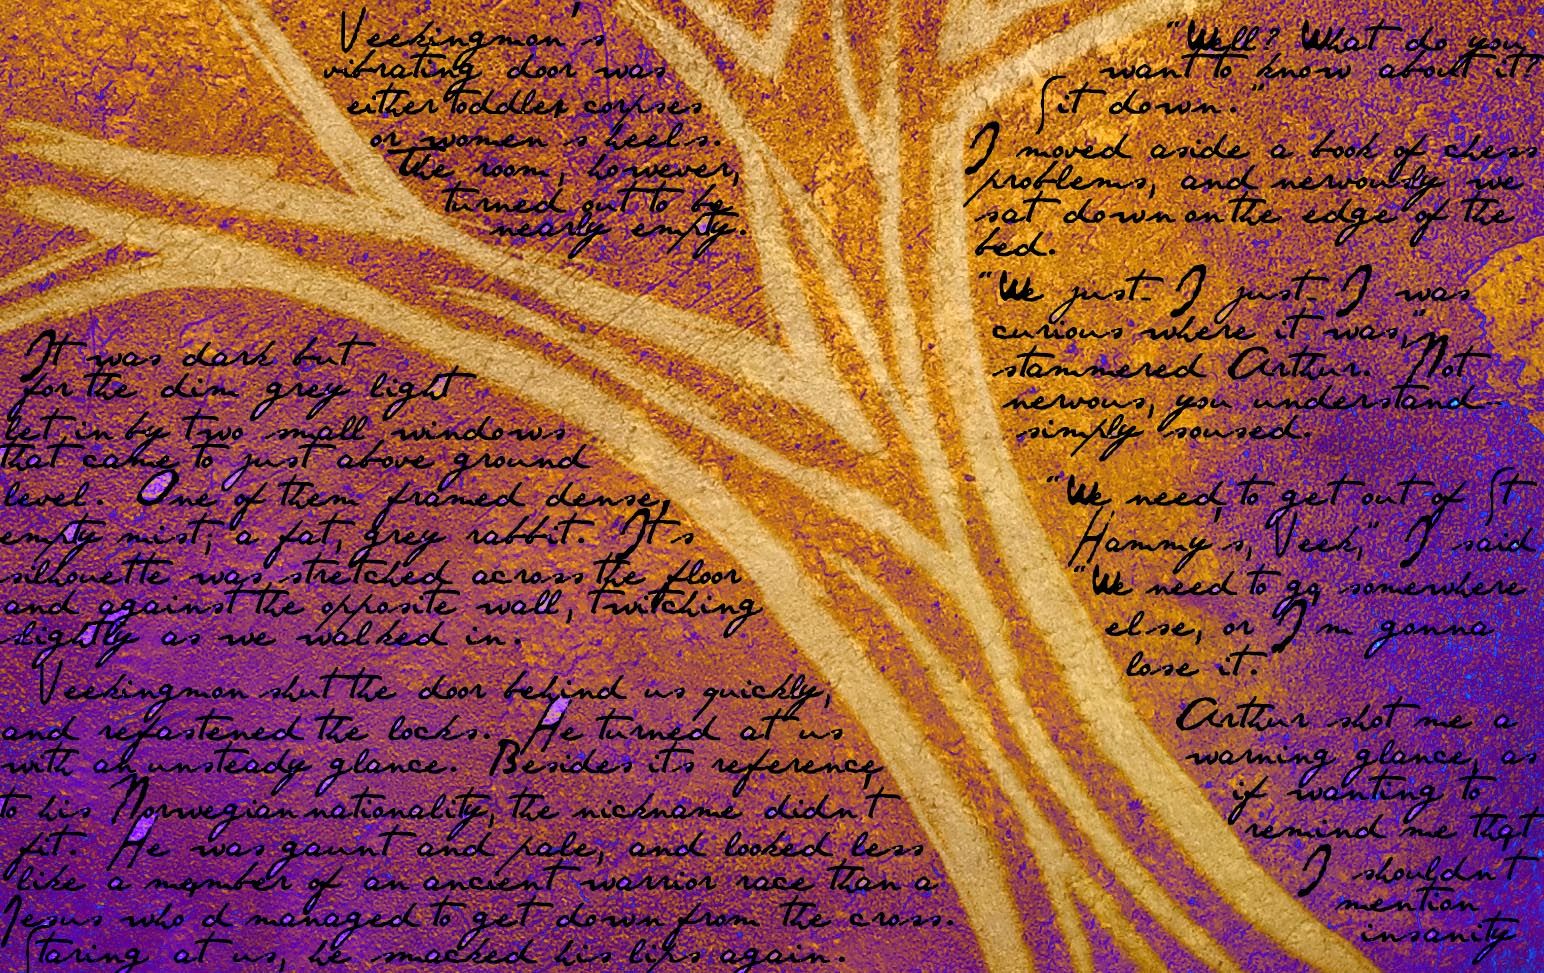 Veekingmon's
vibrating door was
either toddler corpses
or women s heels.
The room, however,
turned out to be
nearly empty.
It was dark but
for the dim grey light
let in by two small windows
that came to just above ground
level. One of them framed dense,
empty mist; a fat, grey rabbit. It s
silhouette was stretched across the floor
and against the opposite wall, twitching
slightly as we walked in.
Veekingmon shut the door behind us quickly,
and refastened the locks. He turned at us
with an unsteady glance. Besides its reference
to his Norwegian nationality, the nickname didn t
fit. He was gaunt and pale, and looked less
like a member of an ancient warrior race than a
Jesus who d managed to get down from the cross.
Staring at us, he smacked his lips again.
"Well? What do you
want to know about it?
Sit down."
I moved aside a book of chess
problems, and nervously we
sat down on the edge of the
bed.
"We just- I just- I was
curious where it was,"
stammered Arthur. Not
nervous, you understand-
simply soused.
"We need to get out of St
Hammy s, Veek," I said
"We need to go somewhere
else, or I m gonna
lose it."
Arthur shot me a
warning glance, as
if wanting to
remind me that
I shouldn t
mention
insanity